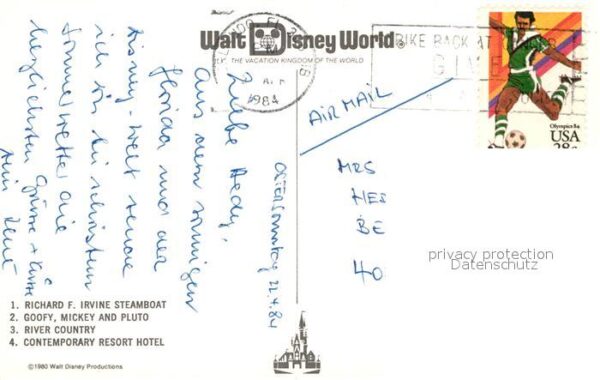 Walt Disney World®
THE VACATION KINGDOM OF THE WORLD
1984
Olympics 84
USA
28c
AIR MAIL
OSTERsonntag 22.4.84
Liebe Hedy,
Aus dem sonnigen
Florida und der
Disney-Welt sende
ich dir bei schönstem
Sommerwetter die
herzlichsten Grüsse + Küsse
dein René
MRS
HE
BE
40
privacy protection
Datenschutz
1. RICHARD F. IRVINE STEAMBOAT
2. GOOFY, MICKEY AND PLUTO
3. RIVER COUNTRY
4. CONTEMPORARY RESORT HOTEL
©1980 Walt Disney Productions